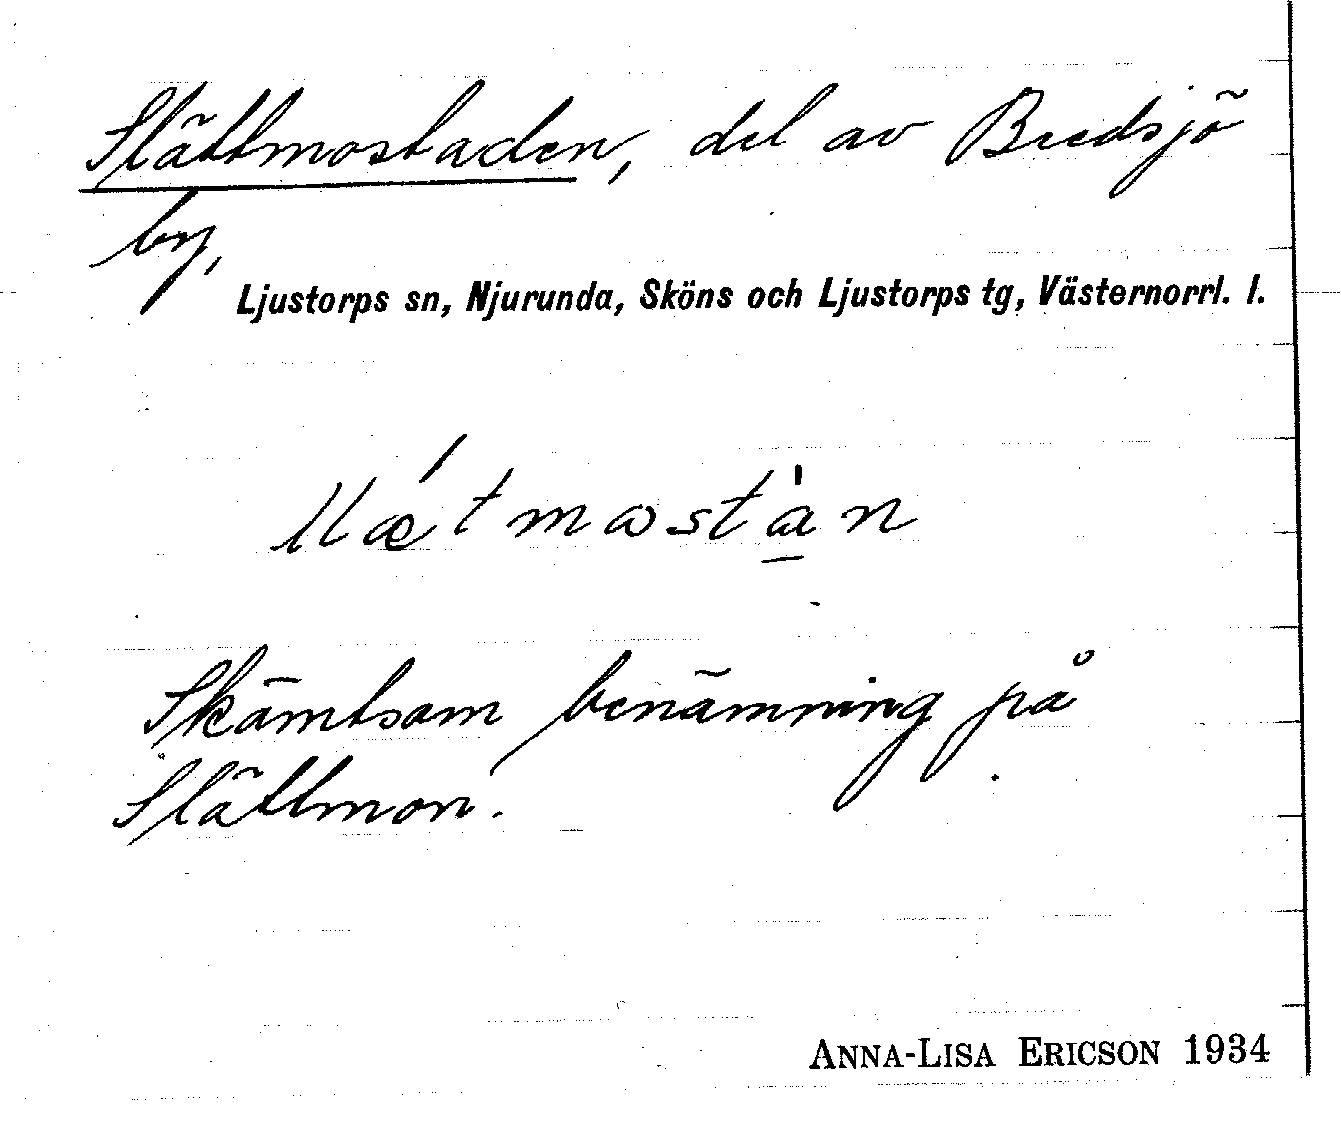 Slättmostaden, del av Bredsjö
by,
Ljustorps sn, Njurunda, Sköns och Ljustorps tg, Västernorrl. l.
Skämtsam benämning på
Slättmon.
ANNA-LISA ERICSON 1934